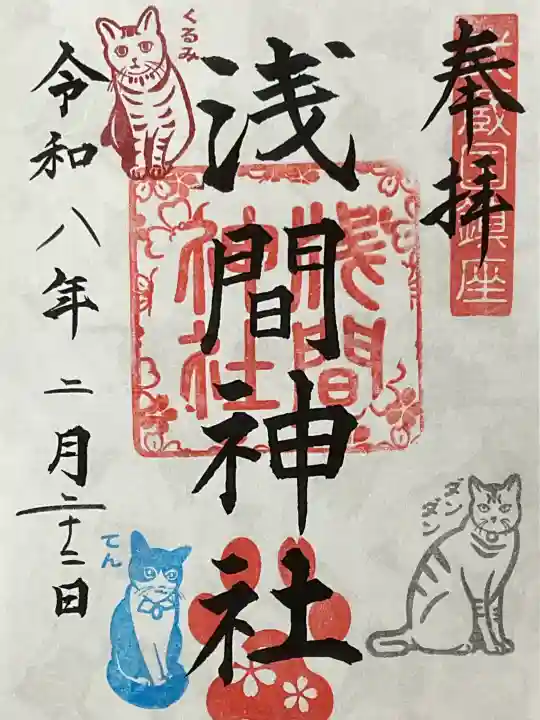 奉拝
武蔵国鎮座
浅間神社
浅間
神社
令和八年二月二十二日
くるみ
てん
ダンダン